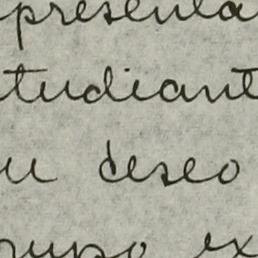 presenta
tudiant
u deseo
rupo ex